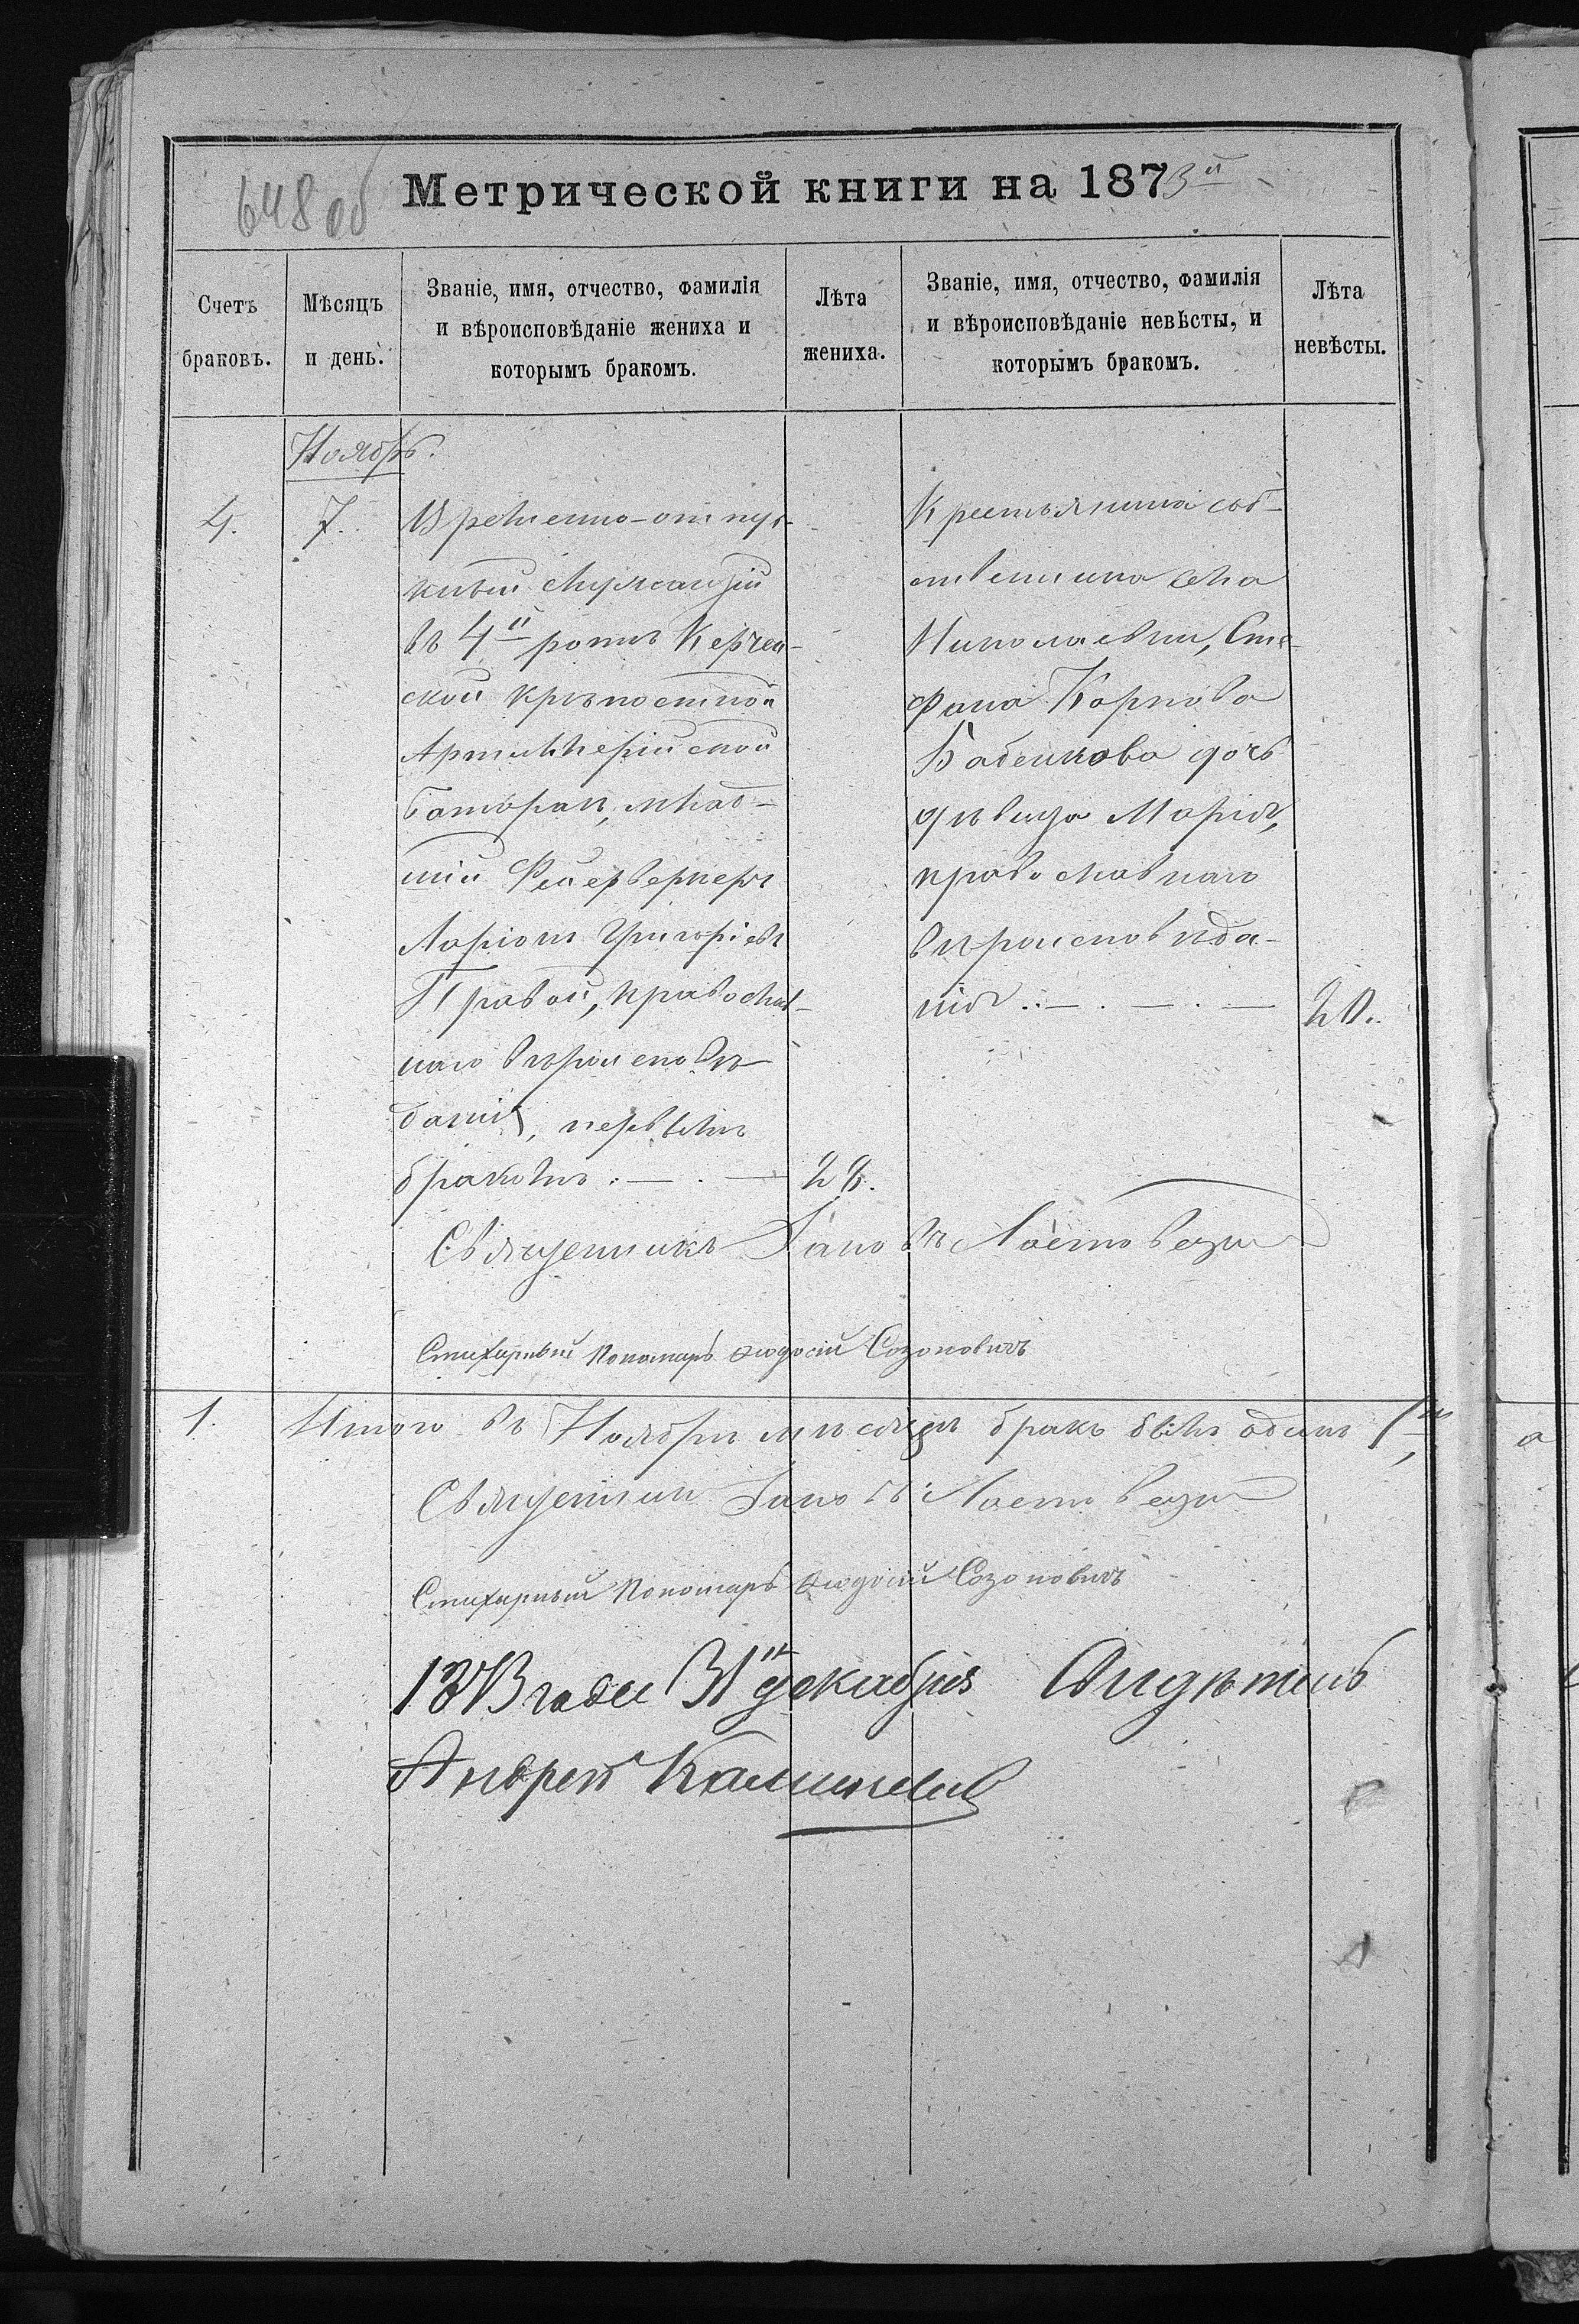 648 об
Метрической книги на 1873й
Счетъ браковъ.
Мѣсяцъ и день.
Званіе, имя, отчество, фамилія и вѣроисповѣданіе жениха и которымъ бракомъ.
Лѣта жениха.
Званіе, имя, отчество, фамилія и вѣроисповѣданіе невѣсты, и которымъ бракомъ.
Лѣта невѣсты.
Ноябрь.
4.
7.
Временно-отпус-
кный служащій
въ 4й ротѣ Керчен-
ской крѣпостной
Артиллерійской
батареи, млад-
шій Фейерверкеръ
Ларіонъ Григоріевъ
Правой, православ-
наго вѣроисповѣ-
данія, первымъ
бракомъ.
28.
Крестьянина соб-
ственника села
Николаевки, Сте-
фана Карпова
Бабенкова дочь
дѣвица Марія,
православнаго
вѣроисповѣда-
нія
20.
Священникъ Іаковъ
Стихарный Пономарь Ѳеодосій Созоновичъ
1. Итого въ Ноябрѣ мѣсяцѣ бракъ былъ одинъ 1й
Священник Іаковъ
Стихарный Пономарь Ѳеодосій Созоновичъ
1873 года 31 декабря
Андрей